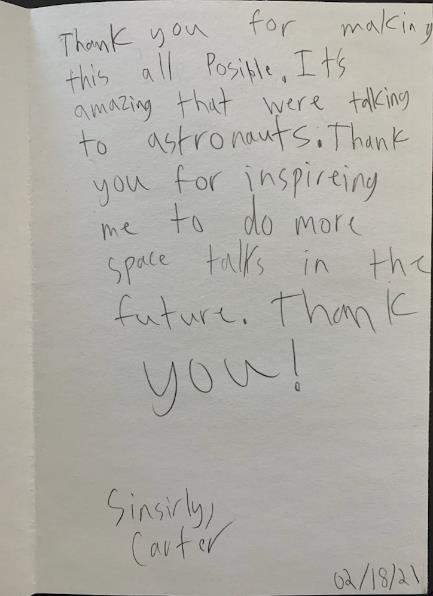 Thank you for making
this all Posible. It's
amazing that were talking
to astronauts. Thank
you for inspireing
me to do more
space talks in the
future. Thank
you!
Sinsirly,
Carter
02/18/21